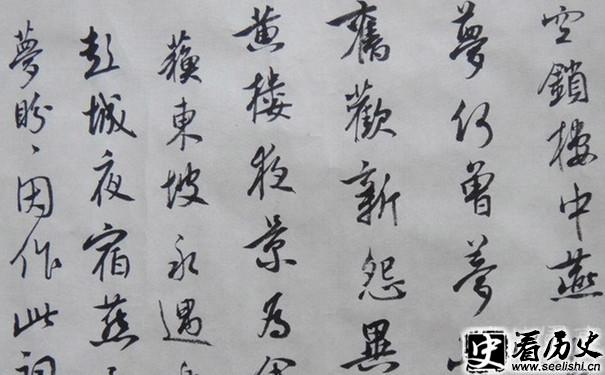 空鎖樓中燕
夢何曾夢
舊歡新怨異
黄樓夜景為
蘇東坡永遇
彭城夜宿燕
夢盼、因作此詞
史 看历史
www.seelishi.cn